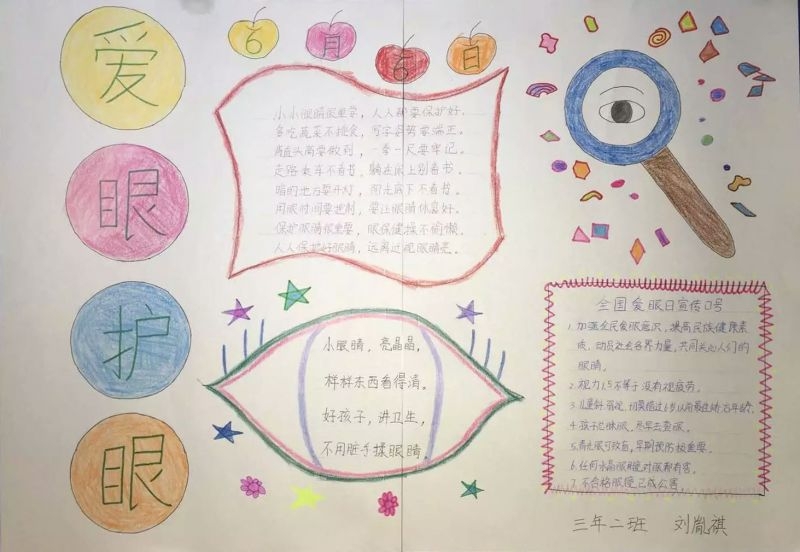 爱
眼
护
眼
6月6日
小小眼睛很重要，人人都要保护好。
多吃蔬菜不挑食，写字姿势要端正。
肩直头高要做到，一拳一尺要牢记。
走路乘车不看书，躺在床上别看书。
暗的地方要开灯，阳光底下不看书。
用眼时间要控制，要让眼睛休息好。
保护眼睛很重要，眼保健操不偷懒。
人人保护好眼睛，远离近视眼睛亮。
小眼睛，亮晶晶，
样样东西看得清。
好孩子，讲卫生，
不用脏手揉眼睛。
全国爱眼日宣传口号
1. 加强全民爱眼意识，提高民族健康素
质，动员社会各界力量，共同关心人们的
眼睛。
2. 视力1.5不等于没有视疲劳。
3. 儿童斜弱视，切莫错过6岁以前最佳治疗年龄。
4. 孩子总眯眼，尽早去查眼。
5. 青光眼可致盲，早期预防极重要。
6. 任何水晶眼镜对眼都有害。
7. 不合格眼镜已成公害
三年二班 刘胤祺